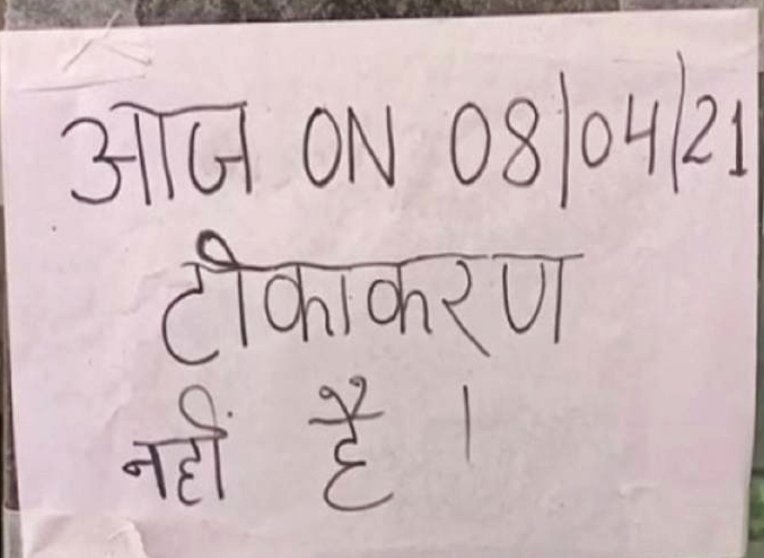 आज ON 08/04/21
टीकाकरण
नहीं है ।